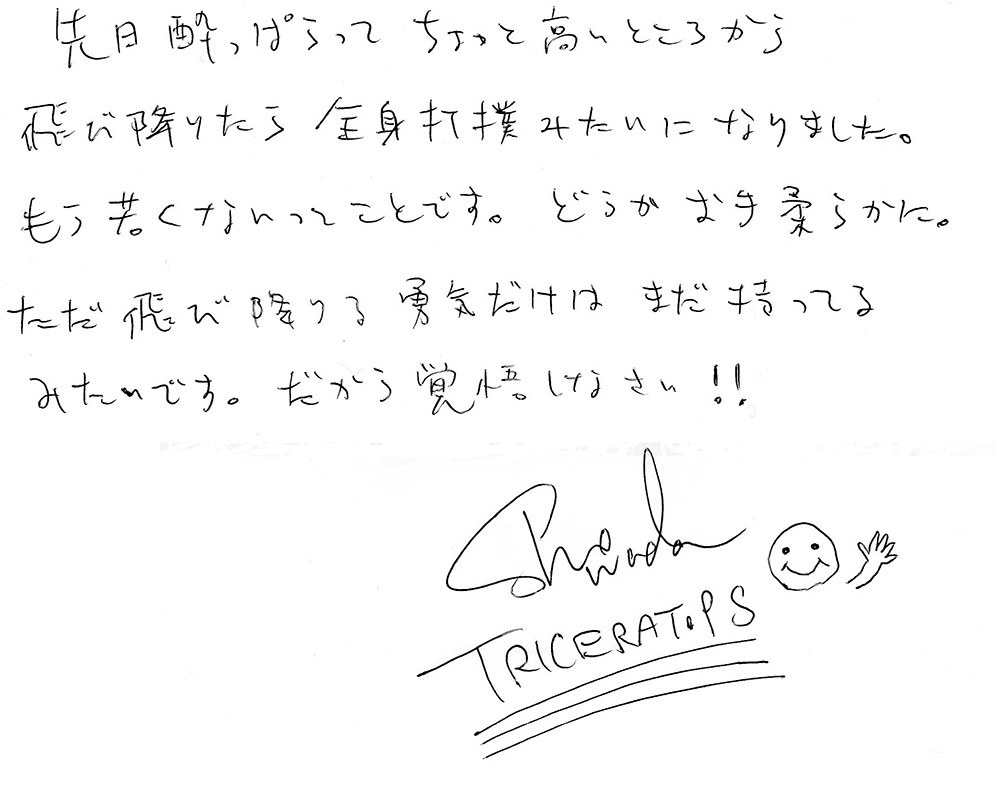 先日酔っぱらって ちょっと高いところから
飛び降りたら 全身打撲みたいになりました。
もう若くないってことです。どうかお手柔らかに。
ただ飛び降りる勇気だけは まだ持ってる
みたいです。だから覚悟しなさい!!
Sho Wada
TRICERATOPS